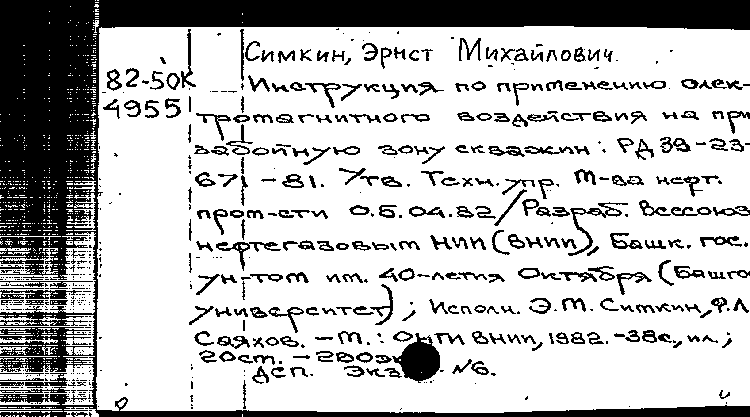 Симкин, Эрнст Михайлович.
82-50К Инструкция по применению элек-
4955 тромагнитного воздействия на при
забойную зону скважин: РД 39-23-
671-81. Утв. Техн. упр. М-ва нефт.
пром-сти 05.04.82/Разраб. Всесоюз
нефтегазовым НИИ (ВНИИ), Башк. гос.
ун-том им. 40-летия Октября (Башго
университет); Исполн. Э.М. Симкин, Ф.Л
Саяхов. - М.: ОНТИ ВНИИ, 1982. - 38с., ил.;
20см. -
ДСП. Экз. №6.